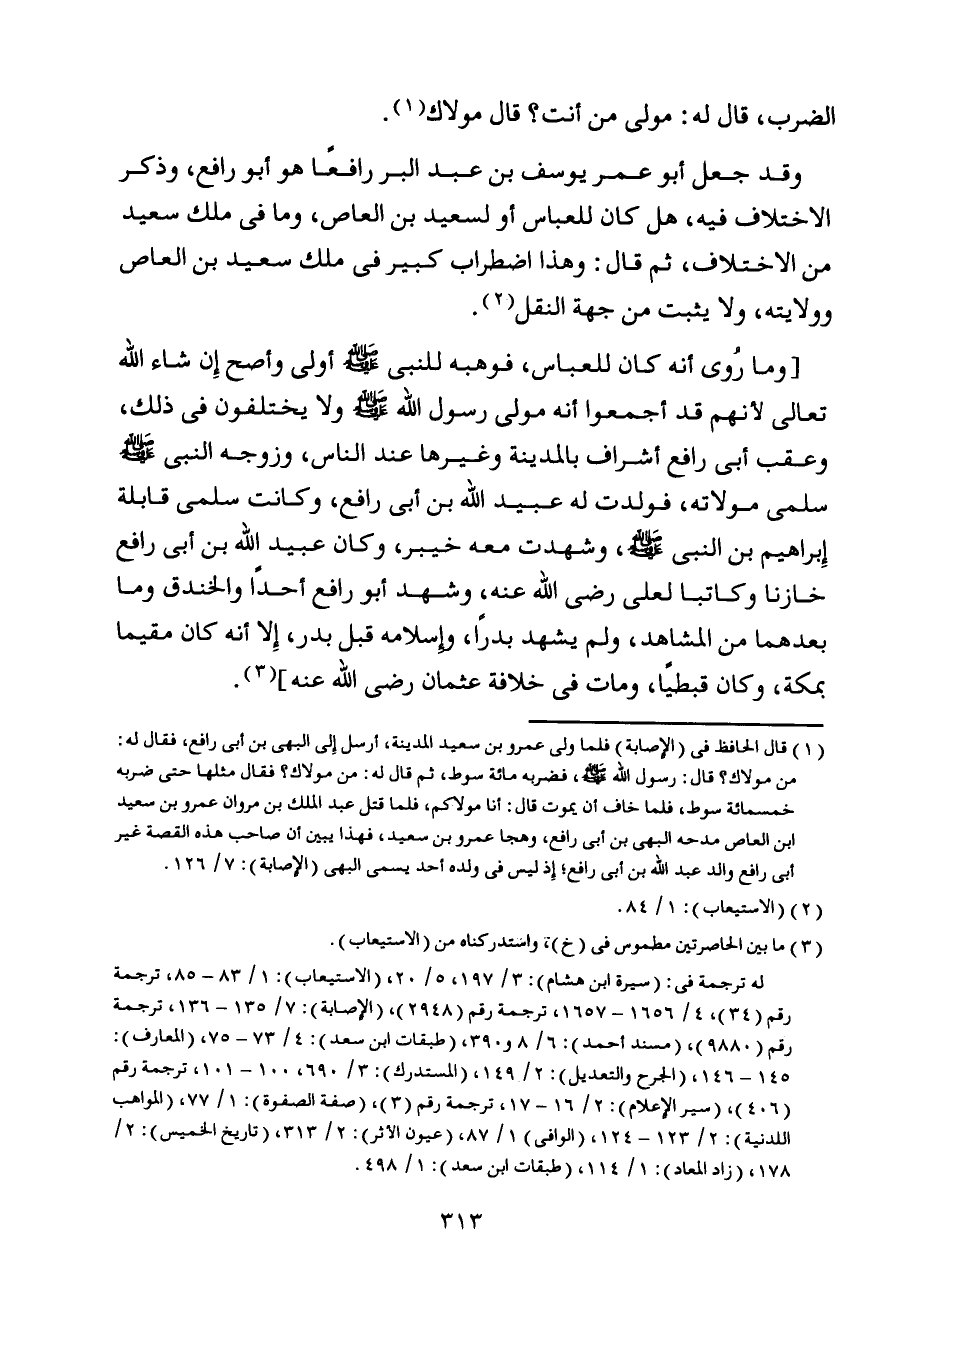 الضرب، قال له: مولى من أنت؟ قال مولاك(١).
وقد جعل أبو عمر يوسف بن عبد البر رافعًا هو أبو رافع، وذكر
الاختلاف فيه، هل كان للعباس أو لسعيد بن العاص، وما فى ملك سعيد
من الاختلاف، ثم قال: وهذا اضطراب كبير فى ملك سعيد بن العاص
وولايته، ولا يثبت من جهة النقل(٢).
[وما رُوى أنه كان للعباس، فوهبه للنبى ﷺ أولى وأصح إن شاء الله
تعالى لأنهم قد أجمعوا أنه مولى رسول الله ﷺ ولا يختلفون فى ذلك،
وعقب أبى رافع أشراف بالمدينة وغيرها عند الناس، وزوجه النبى ﷺ
سلمى مولاته، فولدت له عبيد الله بن أبى رافع، وكانت سلمى قابلة
إبراهيم بن النبى ﷺ، وشهدت معه خيبر، وكان عبيد الله بن أبى رافع
خازنا وكاتبا لعلى رضى الله عنه، وشهد أبو رافع أحدًا والخندق وما
بعدهما من المشاهد، ولم يشهد بدرًا، وإسلامه قبل بدر، إلا أنه كان مقيما
بمكة، وكان قبطيًا، ومات فى خلافة عثمان رضى الله عنه](٣).
(١) قال الحافظ فى (الإصابة) فلما ولى عمرو بن سعيد المدينة، أرسل إلى البهى بن أبى رافع، فقال له:
من مولاك؟ قال: رسول الله ﷺ، فضربه مائة سوط، ثم قال له: من مولاك؟ فقال مثلها حتى ضربه
خمسمائة سوط، فلما خاف أن يموت قال: أنا مولاكم، فلما قتل عبد الملك بن مروان عمرو بن سعيد
ابن العاص مدحه البهى بن أبى رافع، وهجا عمرو بن سعيد، فهذا يبين أن صاحب هذه القصة غير
أبى رافع والد عبد الله بن أبى رافع؛ إذ ليس فى ولده أحد يسمى البهى (الإصابة): ٧/ ١٢٦.
(٢) (الاستيعاب): ١/ ٨٤.
(٣) ما بين الحاصرتين مطموس فى (خ)، واستدركناه من (الاستيعاب).
له ترجمة فى: (سيرة ابن هشام): ٣/ ١٩٧، ٥/ ٢٠، (الاستيعاب): ١/ ٨٣ – ٨٥، ترجمة
رقم (٣٤)، ٤/ ١٦٥٦ – ١٦٥٧، ترجمة رقم (٢٩٤٨)، (الإصابة): ٧/ ١٣٥ – ١٣٦، ترجمة
رقم (٩٨٨٠)، (مسند أحمد): ٦/ ٨ و٣٩٠، (طبقات ابن سعد): ٤/ ٧٣ – ٧٥، (المعارف):
١٤٥ – ١٤٦، (الجرح والتعديل): ٢/ ١٤٩، (المستدرك): ٣/ ٦٩٠، ١٠٠ – ١٠١، ترجمة رقم
(٤٠٦)، (سير الإعلام): ٢/ ١٦ – ١٧، ترجمة رقم (٣)، (صفة الصفوة): ١/ ٧٧، (المواهب
اللدنية): ٢/ ١٢٣ – ١٢٤، (الوافى) ١/ ٨٧، (عيون الأثر): ٢/ ٣١٣، (تاريخ الخميس): ٢/
١٧٨، (زاد المعاد): ١/ ١١٤، (طبقات ابن سعد): ١/ ٤٩٨.
٣١٣